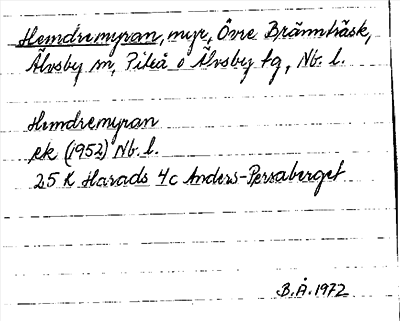 Hemdremyran, myr, Övre Brännträsk,
Älvsby sn, Piteå o Älvsby tg, Nb. l.
Hemdremyran
ek (1952) Nb. l.
25 K Harads 4c Anders-Persaberget
B.Å. 1972